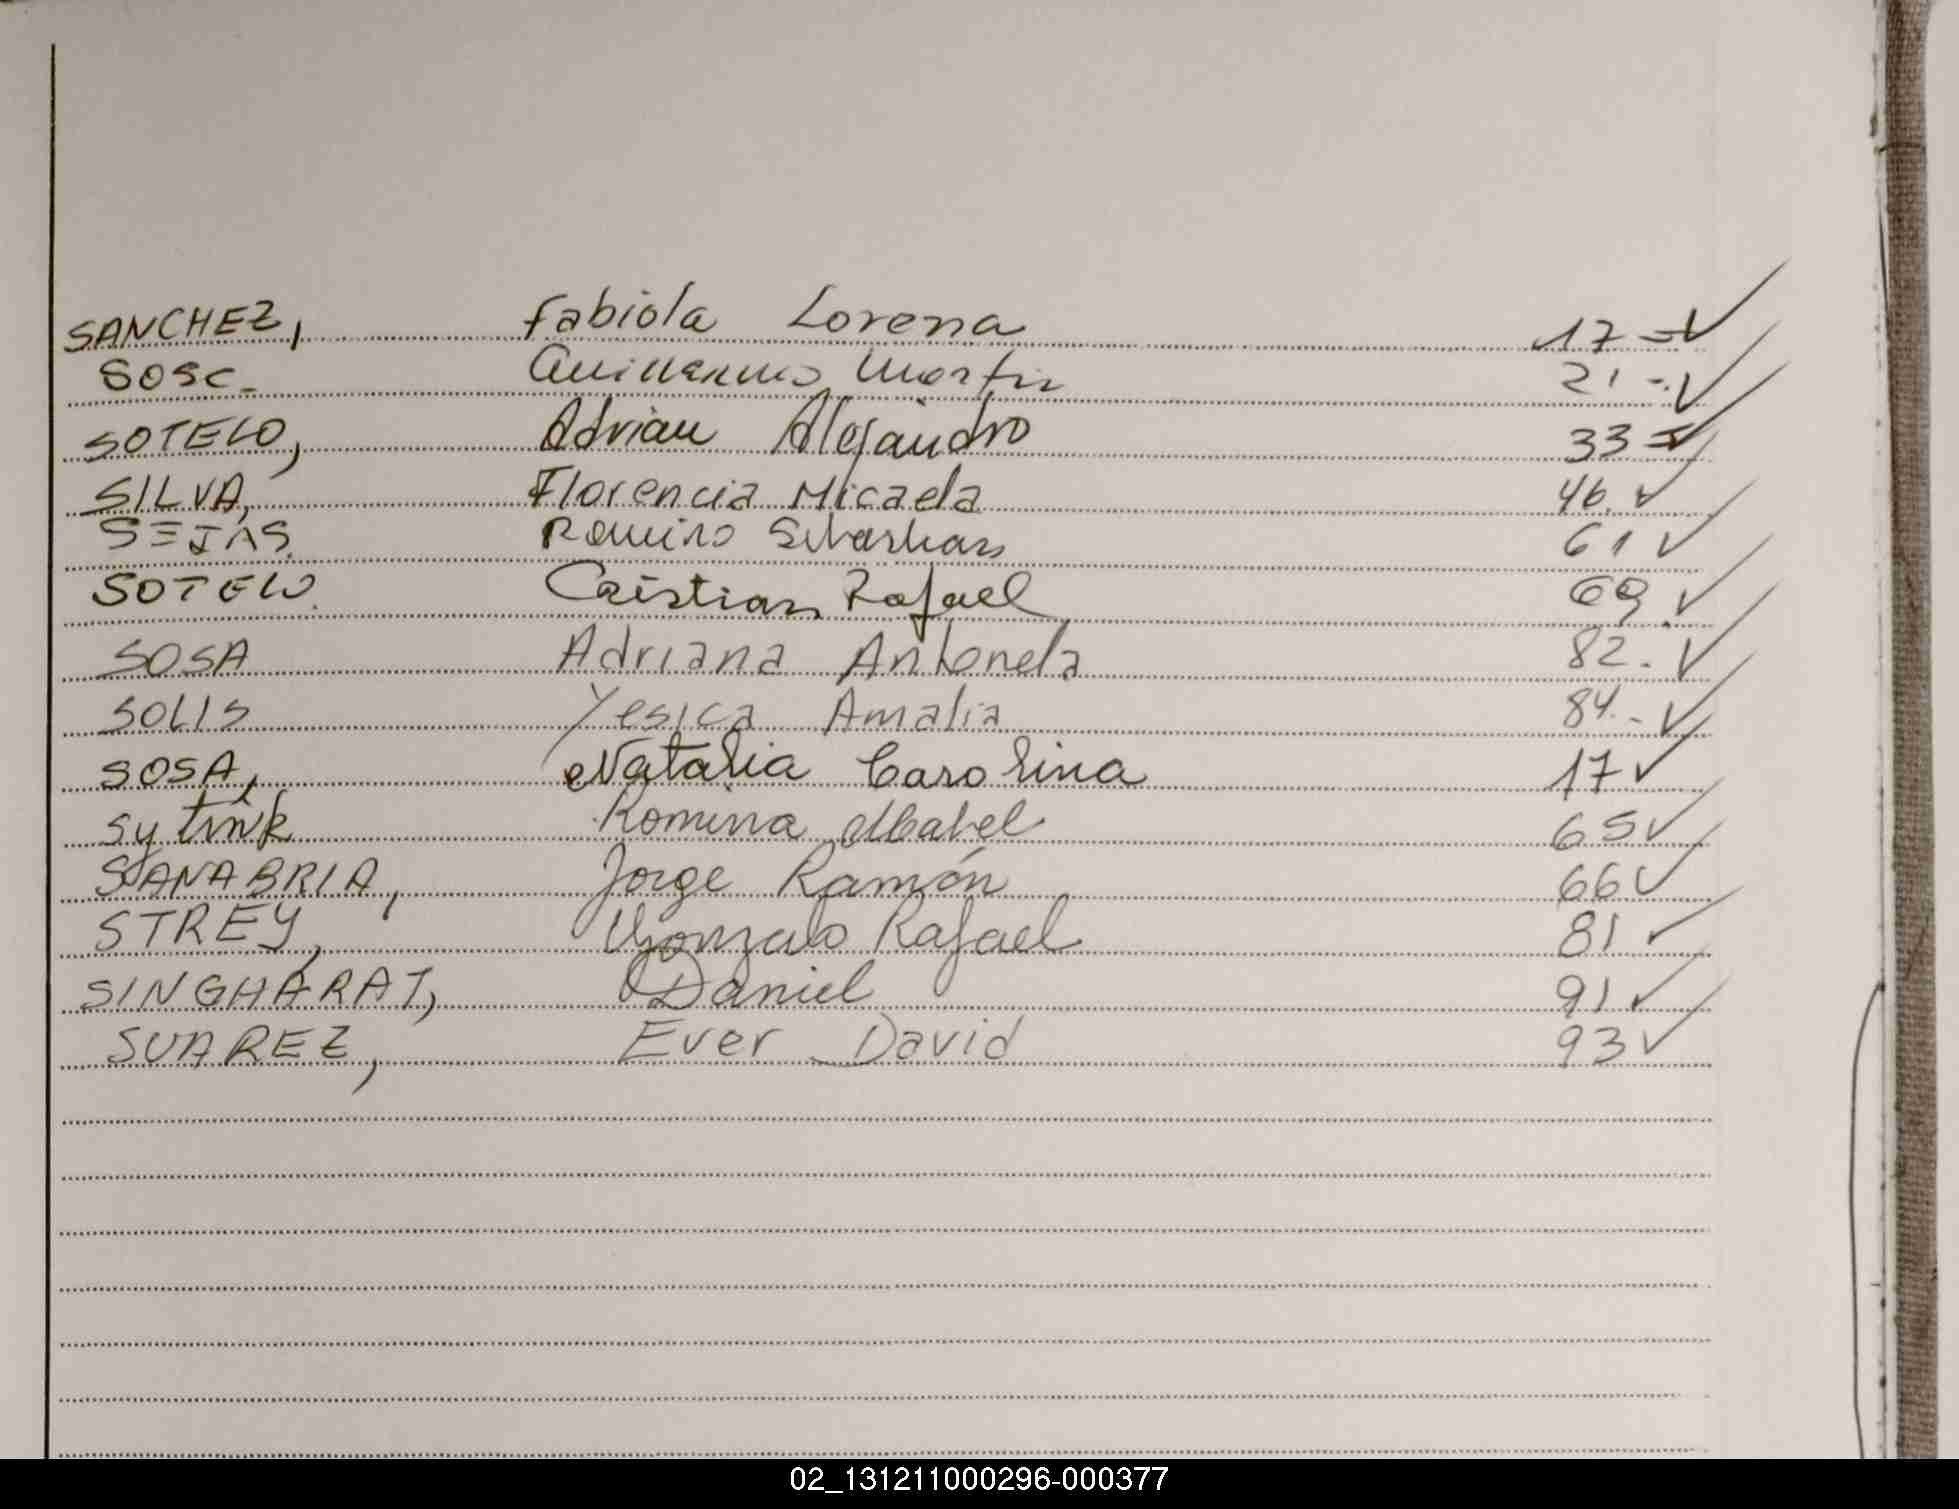 SANCHEZ, Fabiola Lorena 17 =✓
SOSC. Guillermo Martin 21 -.✓
SOTELO, Adrian Alejandro 33 =✓
SILVA, Florencia Micaela 46. ✓
SEJAS. Ramiro Sebastian 61 ✓
SOTELO. Cristian Rafael 69. ✓
SOSA Adriana Antonela 82. ✓
SOLIS Yesica Amalia 84.- ✓
SOSA, Natalia Carolina 17 ✓
Sytink Romina Mabel 65 ✓
SANABRIA, Jorge Ramón 66 ✓
STREY, Gonzalo Rafael 81 ✓
SINGHARAT, Daniel 91 ✓
SUAREZ, Ever David 93 ✓
02_131211000296-000377